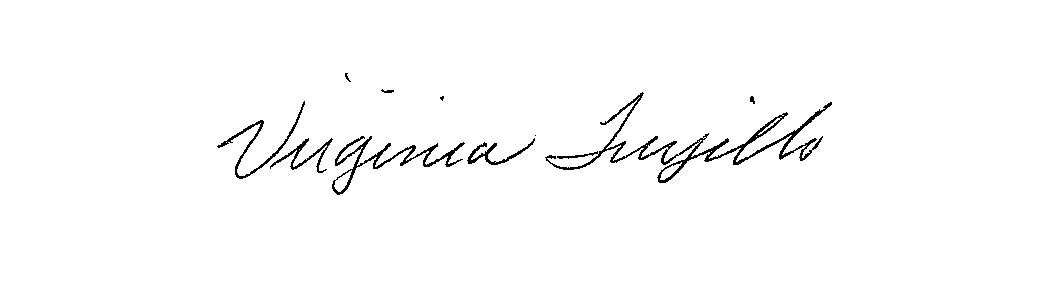 Virginia Trujillo